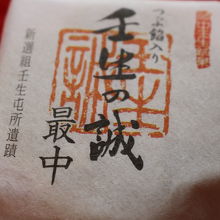 つぶ餡入り
壬生の誠
最中
新選組壬生屯所遺蹟